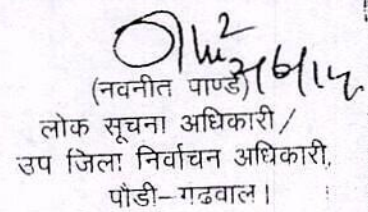 (नवनीत पाण्डे)
लोक सूचना अधिकारी/
उप जिला निर्वाचन अधिकारी,
पौडी-गढवाल।